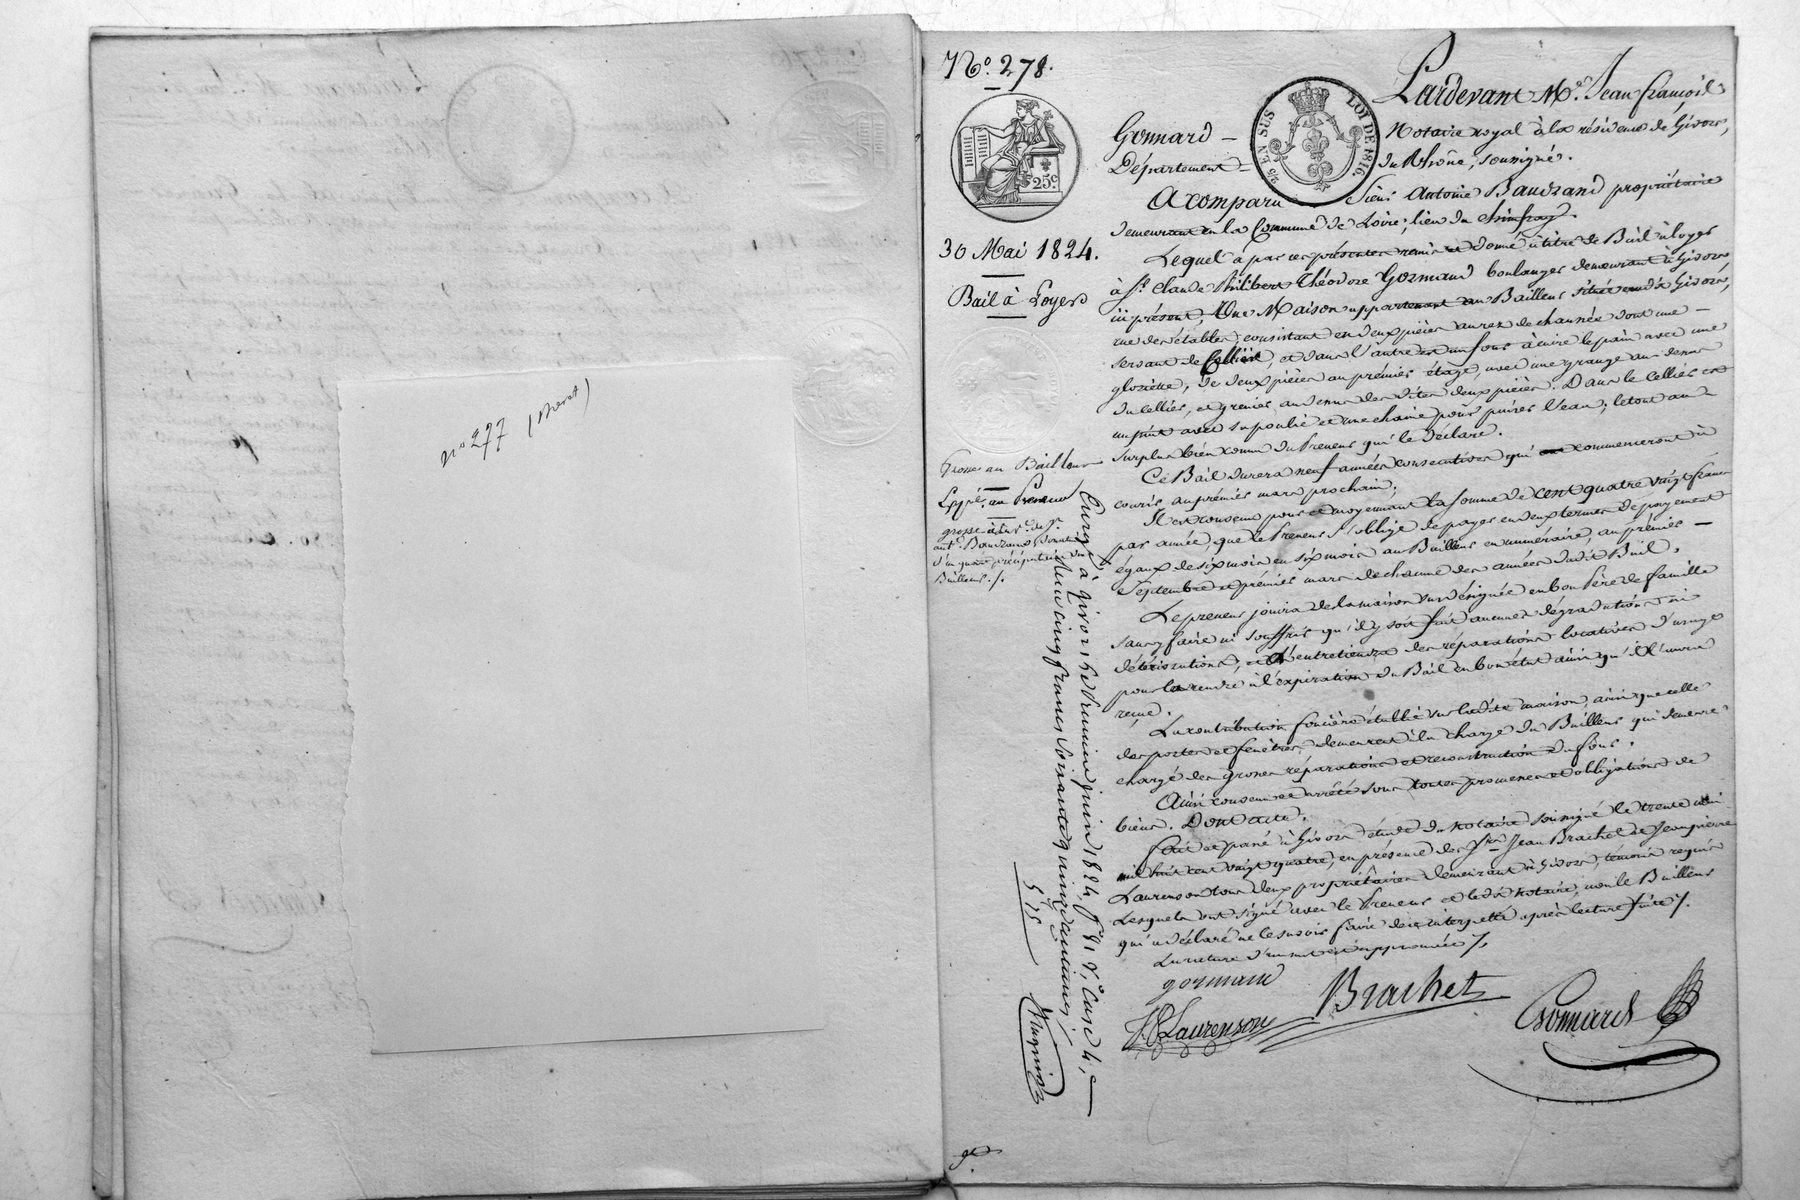 nº 277 (Bret)
Nº. 278.
30 Mai 1824.
Bail à Loyer
25 EN SUS
LOI DE 1816.
25c
Pardevant Me. Jean François
Gonnard – Notaire royal à la résidence de Givors,
Département – du Rhône, soussigné.
A comparu Sieur Antoine Baudrand propriétaire
demeurant en la Commune de Loire, lieu du
Lequel a par ces présentes remis et donné à titre de Bail à loyer
à Sr. Claude Philibert Théodore Gormand boulanger demeurant à Givors
ici présent, Une Maison appartenant au Bailleur située audit Givors,
rue des étables, consistant en deux pièces au rez de chaussée dont une –
servant de Cellier, et dans l'autre est un four à cuire le pain avec une
gloriette, de deux pièces au prémier étage, avec une grange au dessus
du cellier, et grenier au dessus des dites deux pièces. Dans le cellier est
un puits avec sa poulie et une chaine pour puiser l'eau; le tout au
surplus bien connu du Preneur qui le déclare.
Ce Bail durera neuf années consécutives qui commenceront à
courir au prémier mars prochain;
Il est consenu pour et moyennant la somme de cent quatre vingt francs
par année, que le Preneur s'oblige de payer en deux termes de payement
égaux de six mois en six mois au Bailleur en numéraire, au prémier –
Septembre et prémier mars de chacune des années dudit Bail.
Le preneur jouira de la maison sus désignée en bon Père de famille
sans y faire ni souffrir qu'il y soit fait aucunes dégradations ni
détériorations, et l'entretiendra des réparations locatives d'usage
pour la rendre à l'expiration du Bail en bon état ainsi qu'il l'aura
reçue.
La contribution foncière établie sur ladite maison, ainsi que celle
des portes et fenêtres, demeurent à la charge du Bailleur qui demeure
chargé des grosses réparations et reconstruction du four.
Ainsi consenu et arrété sous toutes promesses et obligations de
biens. Dont acte.
Fait et passé à Givors étude du Notaire soussigné le trente mai
mil huit cent vingt quatre, en présence des Srs. Jean Brachet et Jean pierre
Laurenson tous deux propriétaires demeurant à Givors, témoins requis
Lesquels ont signé avec le Preneur et ledit Notaire, non le Bailleur
qui a déclaré ne le savoir faire de ce interpellé après lecture faite /.
La rature d'un mot est approuvée /.
gormand
Brachet
J. P. Laurenson
Gonnard
Grosse au Bailleur
Expn. au Preneur
grosse à Sr. de Sr.
ant. Baudrand
d'un quart précipitaire du
Bailleur. /.
Enrgé. à givors le premier juin 1824, f° 81 v°. Case 4,
Reçu cinq francs soixante quinze centimes
5 75